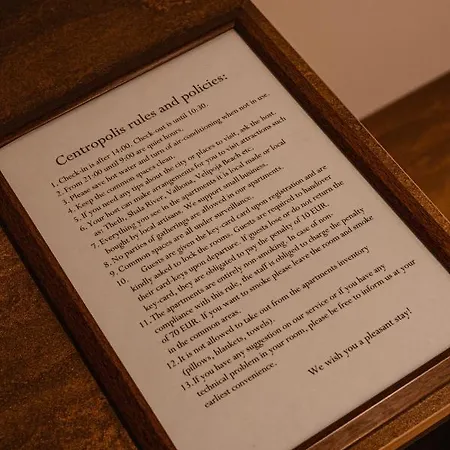 Centropolis rules and policies:
1. Check-in is after 14:00. Check-out is until 10:30.
2. From 21:00 until 9:00 are quiet hours.
3. Please save hot water and turn of air-conditioning when not in use.
4. Keep the common spaces clean.
5. If you need any tips about the city or places to visit, ask the host.
6. Your host can make arrangements for you to visit attractions such
as Theth, Shala River, Valbona, Velipoja Beach etc.
7. Everything you see in the apartments it is local made or local
bought by local artisans. We support small business.
8. No parties of gatherings are allowed in our apartments.
9. Common spaces are all under surveillance.
10. Guests are given the key-card upon registration and are
kindly asked to lock the rooms. Guests are required to handover
their card keys upon departure. If guests lose or do not return the
key-card, they are obligated to pay the penalty of 10 EUR.
11. The apartments are entirely non-smoking. In case of non-
compliance with this rule, the staff is obliged to charge the penalty
of 70 EUR. If you want to smoke please leave the room and smoke
in the common areas.
12. It is not allowed to take out from the apartments inventory
(pillows, blankets, towels).
13. If you have any suggestion on our service or if you have any
technical problem in your room, please be free to inform us at your
earliest convenience.
We wish you a pleasant stay!